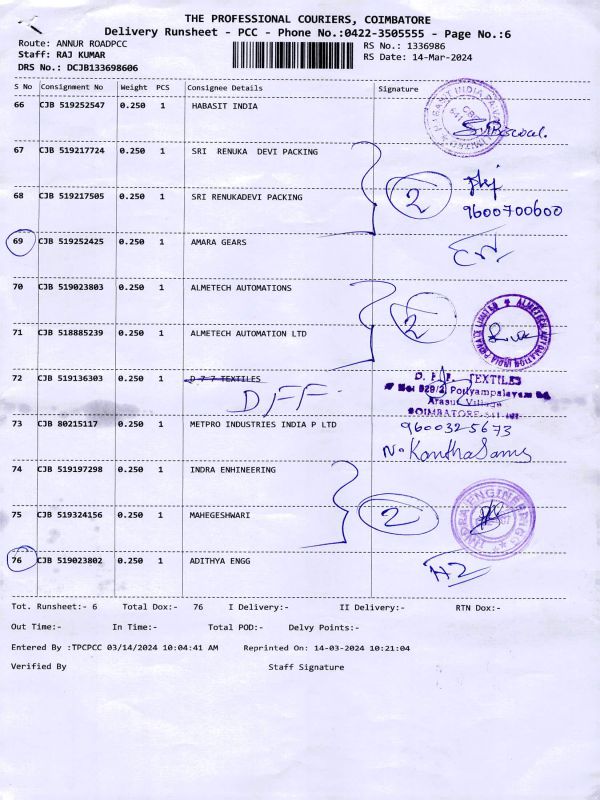 THE PROFESSIONAL COURIERS, COIMBATORE
Delivery Runsheet - PCC - Phone No.:0422-3505555 - Page No.:6
Route: ANNUR ROADPCC
RS No.: 1336986
Staff: RAJ KUMAR
RS Date: 14-Mar-2024
DRS No.: DCJB133698606
S No Consignment No Weight PCS Consignee Details Signature
66 CJB 519252547 0.250 1 HABASIT INDIA
67 CJB 519217724 0.250 1 SRI RENUKA DEVI PACKING
68 CJB 519217505 0.250 1 SRI RENUKADEVI PACKING 2
9600700600
69 CJB 519252425 0.250 1 AMARA GEARS
70 CJB 519023803 0.250 1 ALMETECH AUTOMATIONS
2
ALMETECH AUTOMATION INDIA PRIVATE LIMITED
71 CJB 518885239 0.250 1 ALMETECH AUTOMATION LTD
72 CJB 519136303 0.250 1 D 7 7 TEXTILES
DFF
TEXTILES
Pothyampalayam
Arasur Village
COIMBATORE
73 CJB 80215117 0.250 1 METPRO INDUSTRIES INDIA P LTD
9600325673
N. Kantha Samy
74 CJB 519197298 0.250 1 INDRA ENHINEERING
INDRA ENGINEERING
2
75 CJB 519324156 0.250 1 MAHEGESHWARI
76 CJB 519023802 0.250 1 ADITHYA ENGG
Tot. Runsheet:- 6 Total Dox:- 76 I Delivery:- II Delivery:- RTN Dox:-
Out Time:- In Time:- Total POD:- Delvy Points:-
Entered By :TPCPCC 03/14/2024 10:04:41 AM Reprinted On: 14-03-2024 10:21:04
Verified By Staff Signature